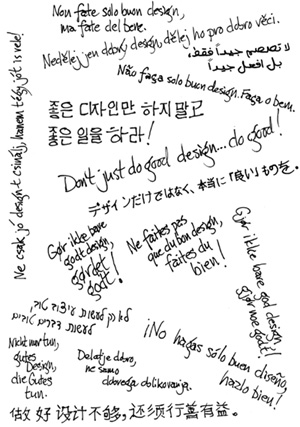 Non fate solo buon design,
ma fate del bene.
Nedělej jen dobrý design, dělej ho pro dobro věci.
لا تصمم جيداً فقط،
بل افعل جيداً
Não faça solo buon design. Faça o bem.
Ne csak jó design-t csinálj, hanem tégy jót is vele!
좋은 디자인만 하지말고
좋은 일을 하라!
Don't just do good design... do good!
デザインだけではなく、本当に「良い」ものを。
Gør ikke bare
godt design,
gør det
godt!
Ne faites pas
que du bon design,
faites du
bien!
Gjør ikke bare god design,
gjør noe godt!
לא רק לעשות עיצוב טוב,
לעשות דברים טובים
¡No hagas sólo buen diseño,
hazlo bien!
Nicht nur tun,
gutes
Design,
die Gutes
tun.
Delajte dobro,
ne samo
dobrega oblikovanja.
做好设计不够，还须行善有益。